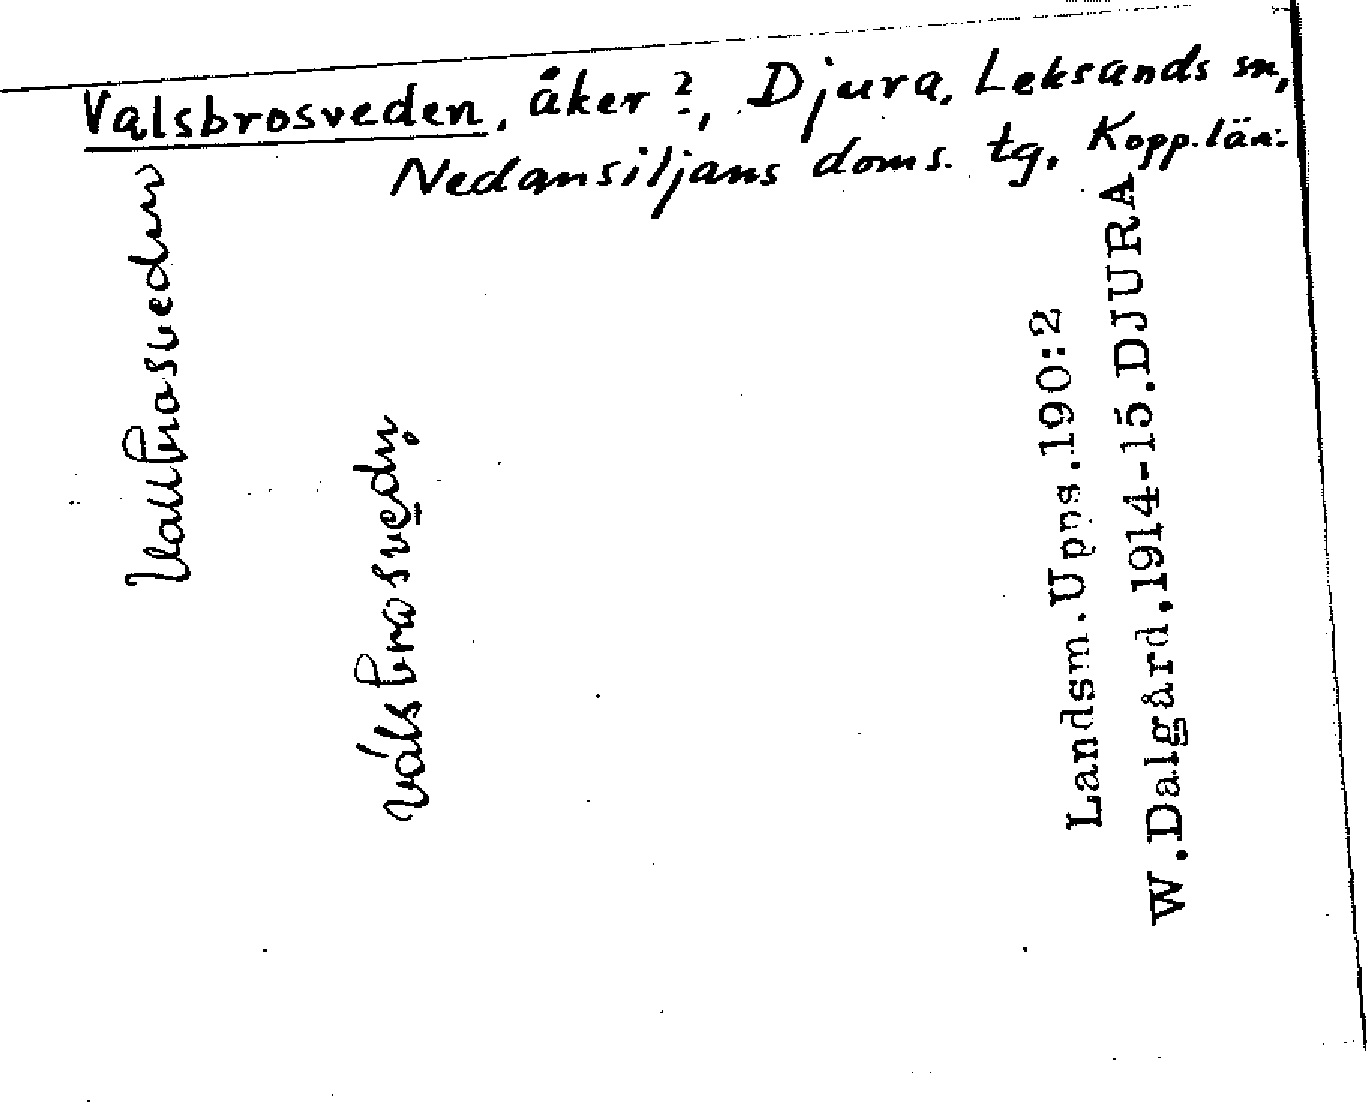 Valsbrosveden, åker ?, Djura, Leksands sn,
Nedansiljans doms. tg, Kopp. län.
Landsm. Upps. 190:2
W. Dalgård. 1914-15. DJURA